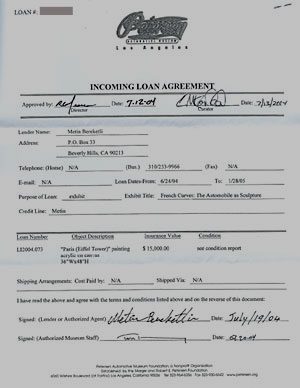 LOAN #:
Petersen
AUTOMOTIVE MUSEUM
Los Angeles
INCOMING LOAN AGREEMENT
Approved by: Date: 7-12-04 Date: 7/13/2004
Director Curator
Lender Name: Metin Bereketli
Address: P.O. Box 33
Beverly Hills, CA 90213
Telephone: (Home) N/A (Bus.) 310/233-9966 (Fax) N/A
E-mail: N/A Loan Dates-From: 6/24/04 To: 1/28/05
Purpose of Loan: exhibit Exhibit Title: French Curves: The Automobile as Sculpture
Credit Line: Metin
Loan Number Object Description Insurance Value Condition
LI2004.073 "Paris (Eiffel Tower)" painting $ 15,000.00 see condition report
acrylic on canvas
36"Wx48"H
Shipping Arrangements: Cost Paid by: N/A Shipped Via: N/A
I have read the above and agree with the terms and conditions listed above and on the reverse of this document:
Signed: (Lender or Authorized Agent) Metin Bereketli Date: July/19/04
Signed: (Authorized Museum Staff) Date:
Petersen Automotive Museum Foundation, a Nonprofit Organization
Endowment by the Margie and Robert E. Petersen Foundation.
6060 Wilshire Boulevard (at Fairfax) Los Angeles, California 90036